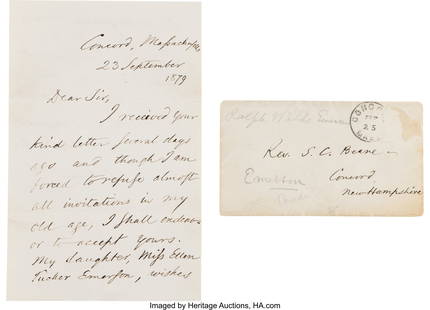 Concord, Massachu
23 September
1879
Dear Sir,
I recieved your
kind letter several days
ago and though I am
forced to refuse almost
all invitations in my
old age, I shall endeav-
or to accept yours.
My daughter, Miss Ellen
Tucker Emerson, wishes
Ralph Waldo Emerson
CONCORD
SEP
25
MASS
Rev. S. C. Beane -
Concord
New Hampshire
Emerson
Imaged by Heritage Auctions, HA.com